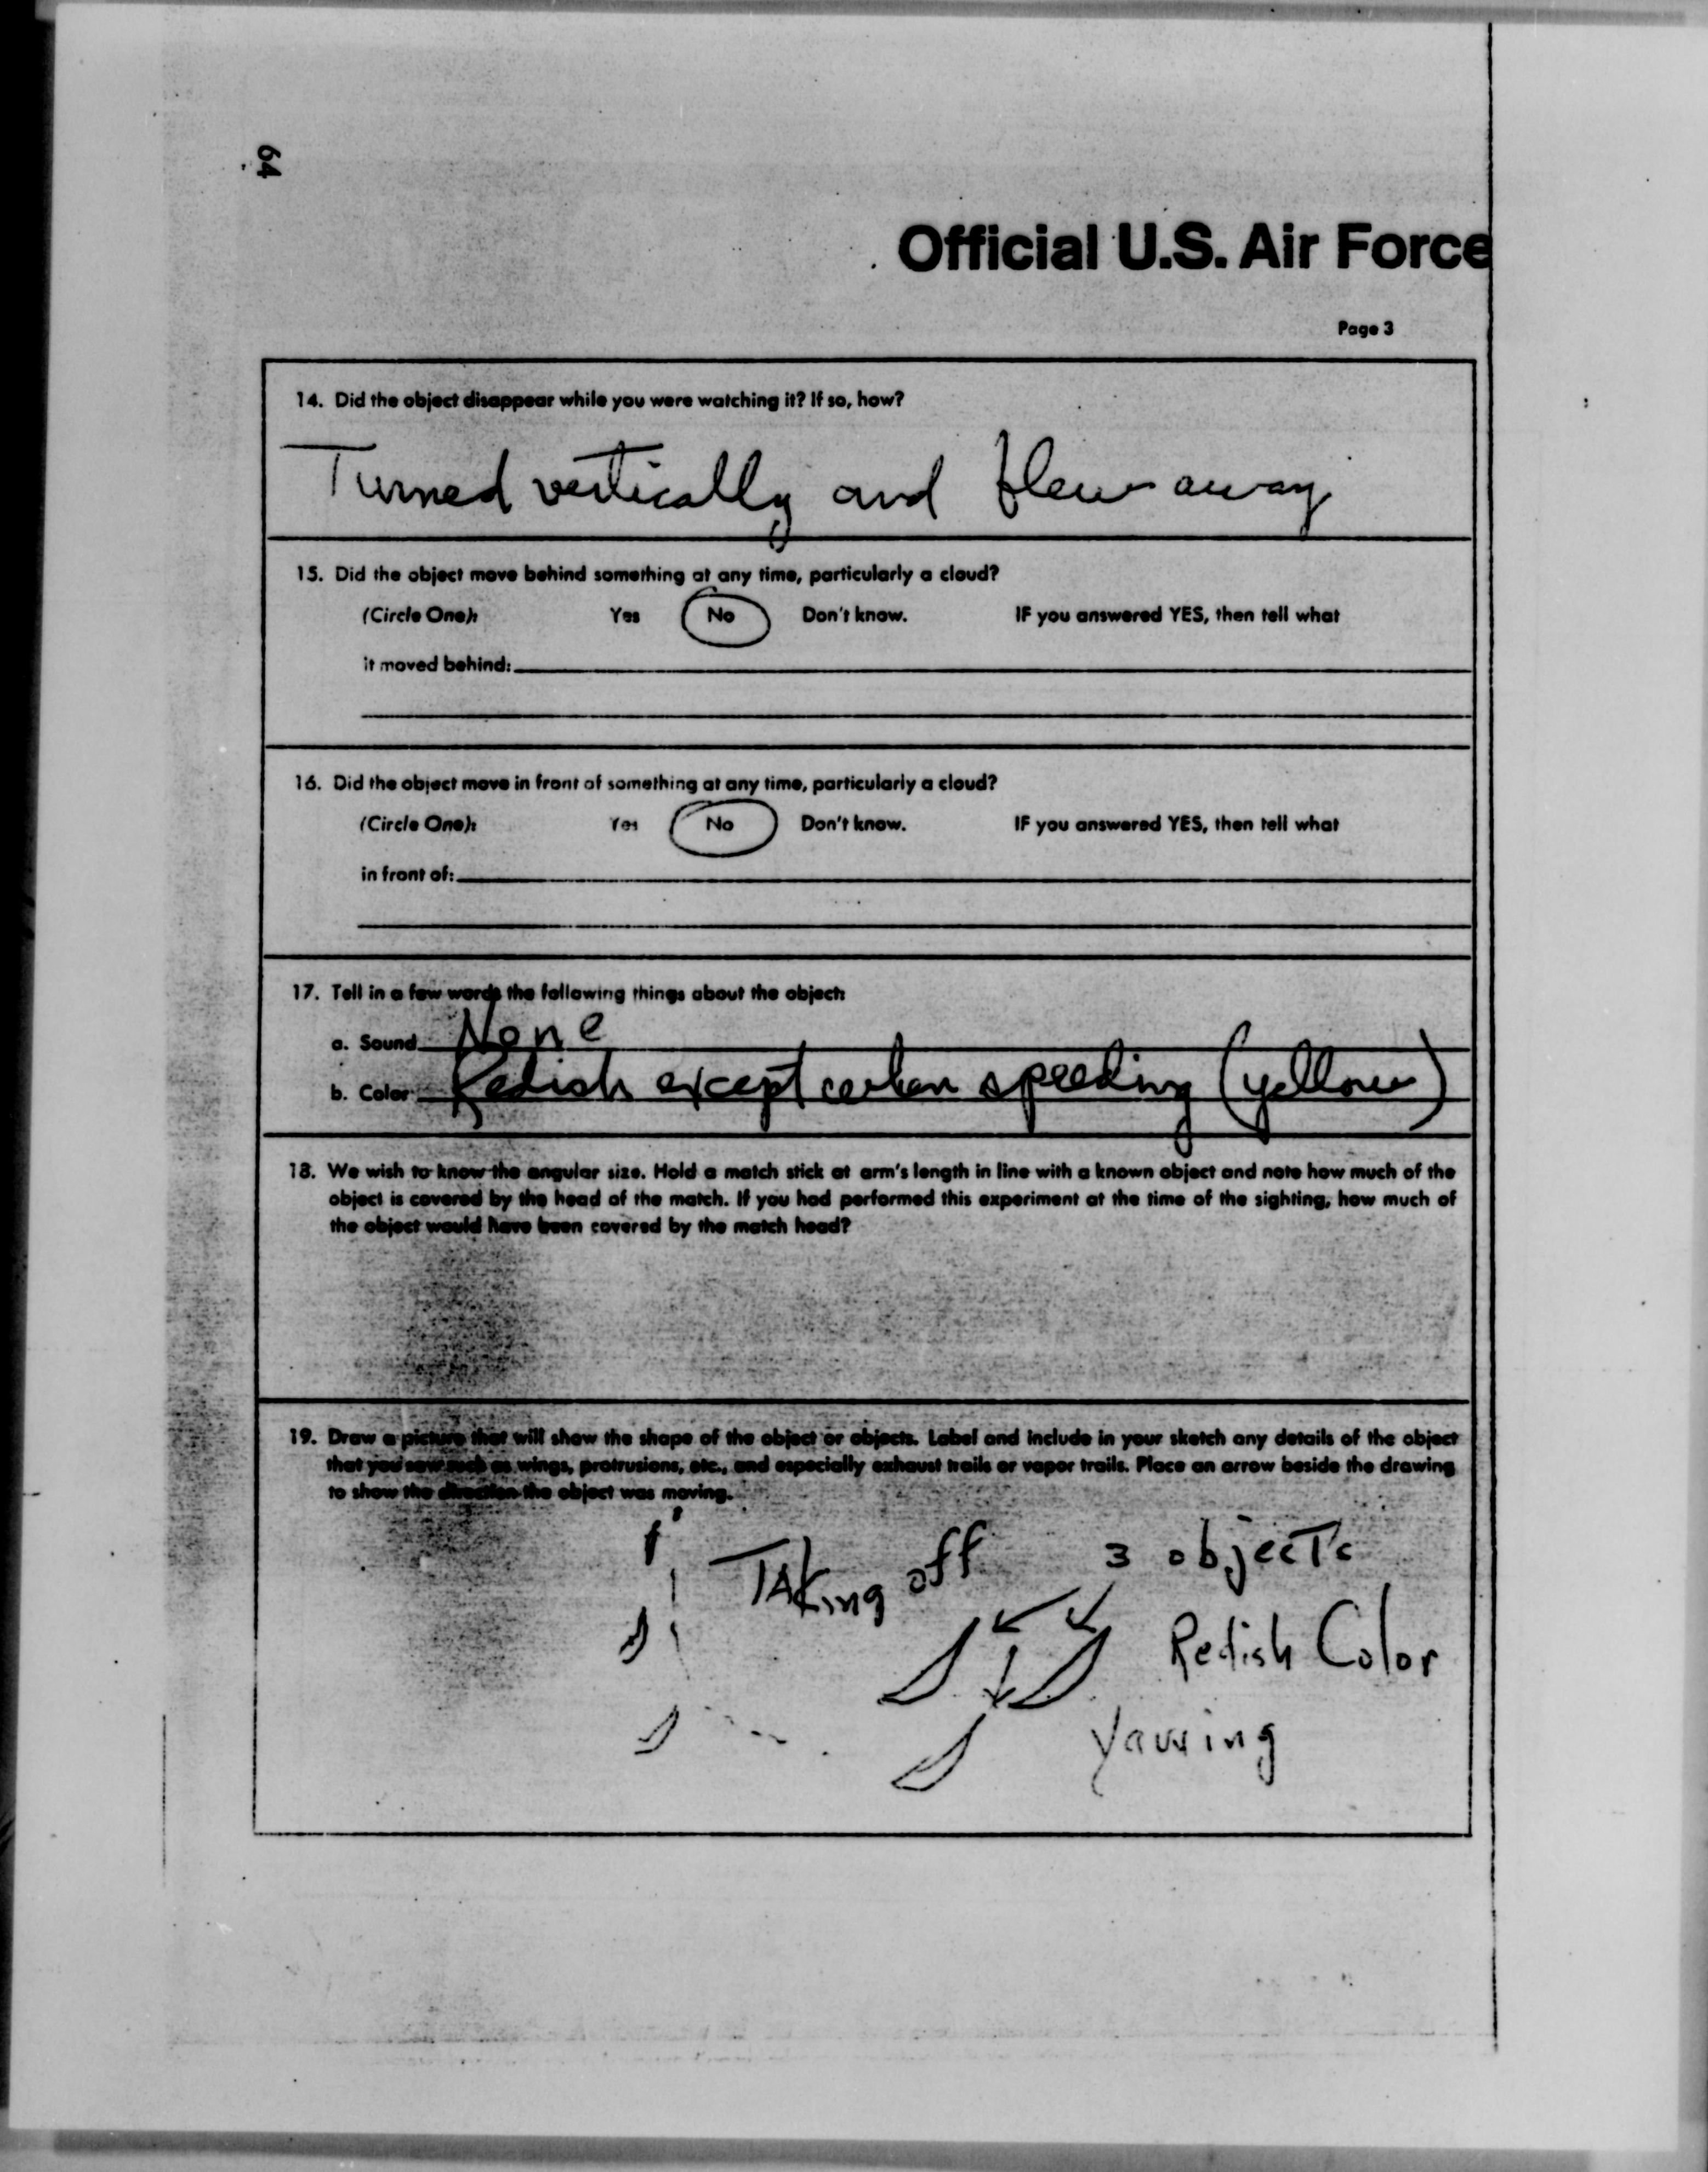 64
Official U.S. Air Force
Page 3
14. Did the object disappear while you were watching it? If so, how?
Turned vertically and flew away
15. Did the object move behind something at any time, particularly a cloud?
(Circle One): Yes No Don't know. IF you answered YES, then tell what
it moved behind:
16. Did the object move in front of something at any time, particularly a cloud?
(Circle One): Yes No Don't know. IF you answered YES, then tell what
in front of:
17. Tell in a few words the following things about the object:
a. Sound None
b. Color Redish except when speeding (yellow)
18. We wish to know the angular size. Hold a match stick at arm's length in line with a known object and note how much of the
object is covered by the head of the match. If you had performed this experiment at the time of the sighting, how much of
the object would have been covered by the match head?
19. Draw a picture that will show the shape of the object or objects. Label and include in your sketch any details of the object
that you saw such as wings, protrusions, etc., and especially exhaust trails or vapor trails. Place an arrow beside the drawing
to show the direction the object was moving.
Taking off 3 objects
Redish Color
Yawing